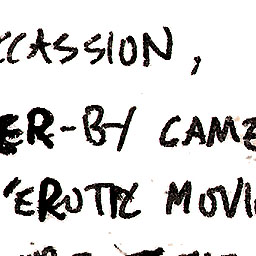 CCASSION,
ER-BY CAME
"EROTIC MOVI